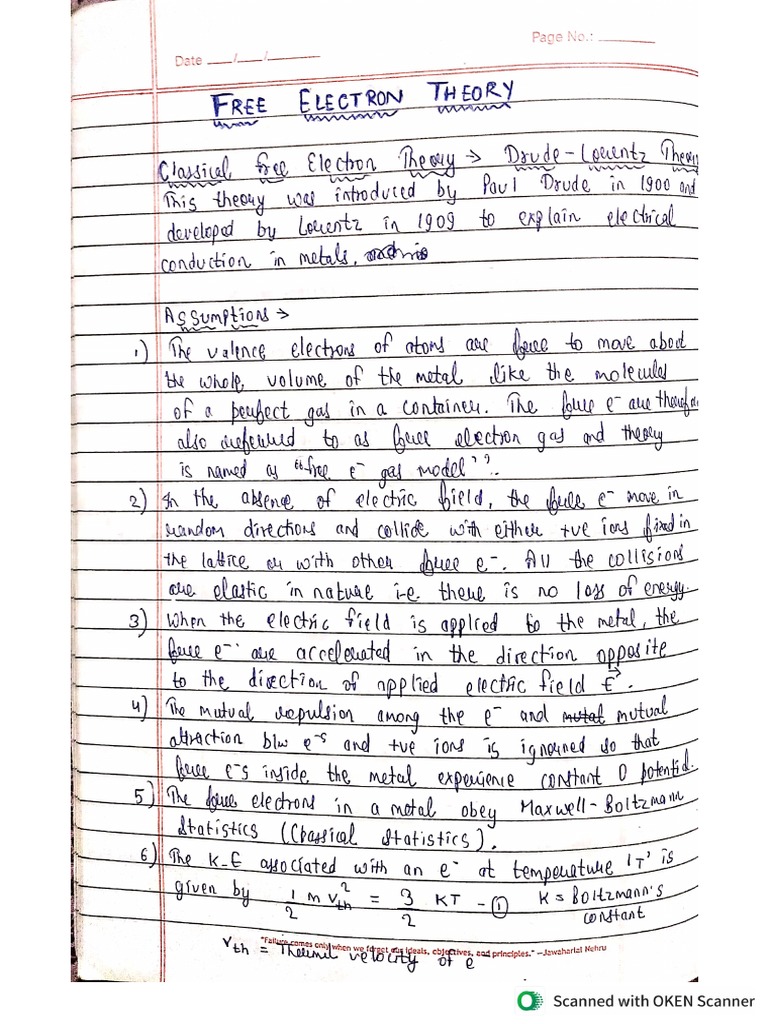 Page No.:
Date __/__/____
FREE ELECTRON THEORY
Classical free Electron Theory → Drude-Lorentz Theory
This theory was introduced by Paul Drude in 1900 and
developed by Lorentz in 1909 to explain electrical
conduction in metals.
Assumptions →
1) The valence electrons of atoms are free to move about
the whole volume of the metal like the molecules
of a perfect gas in a container. The free e⁻ are therefore
also referred to as free electron gas and theory
is named as "free e⁻ gas model".
2) In the absence of electric field, the free e⁻ move in
random directions and collide with either +ve ions fixed in
the lattice or with other free e⁻. All the collisions
are elastic in nature i.e. there is no loss of energy.
3) When the electric field is applied to the metal, the
free e⁻ are accelerated in the direction opposite
to the direction of applied electric field E⃗.
4) The mutual repulsion among the e⁻ and mutal mutual
attraction b/w e⁻s and +ve ions is ignored so that
free e⁻s inside the metal experience constant 0 potential.
5) The free electrons in a metal obey Maxwell-Boltzmann
Statistics (Classical Statistics).
6) The K.E associated with an e⁻ at temperature 'T' is
given by 1/2 m v²th = 3/2 KT - ① K = Boltzmann's
constant
"Failure comes only when we forget our ideals, objectives, and principles." —Jawaharlal Nehru
Vth = Thermal velocity of e
Scanned with OKEN Scanner